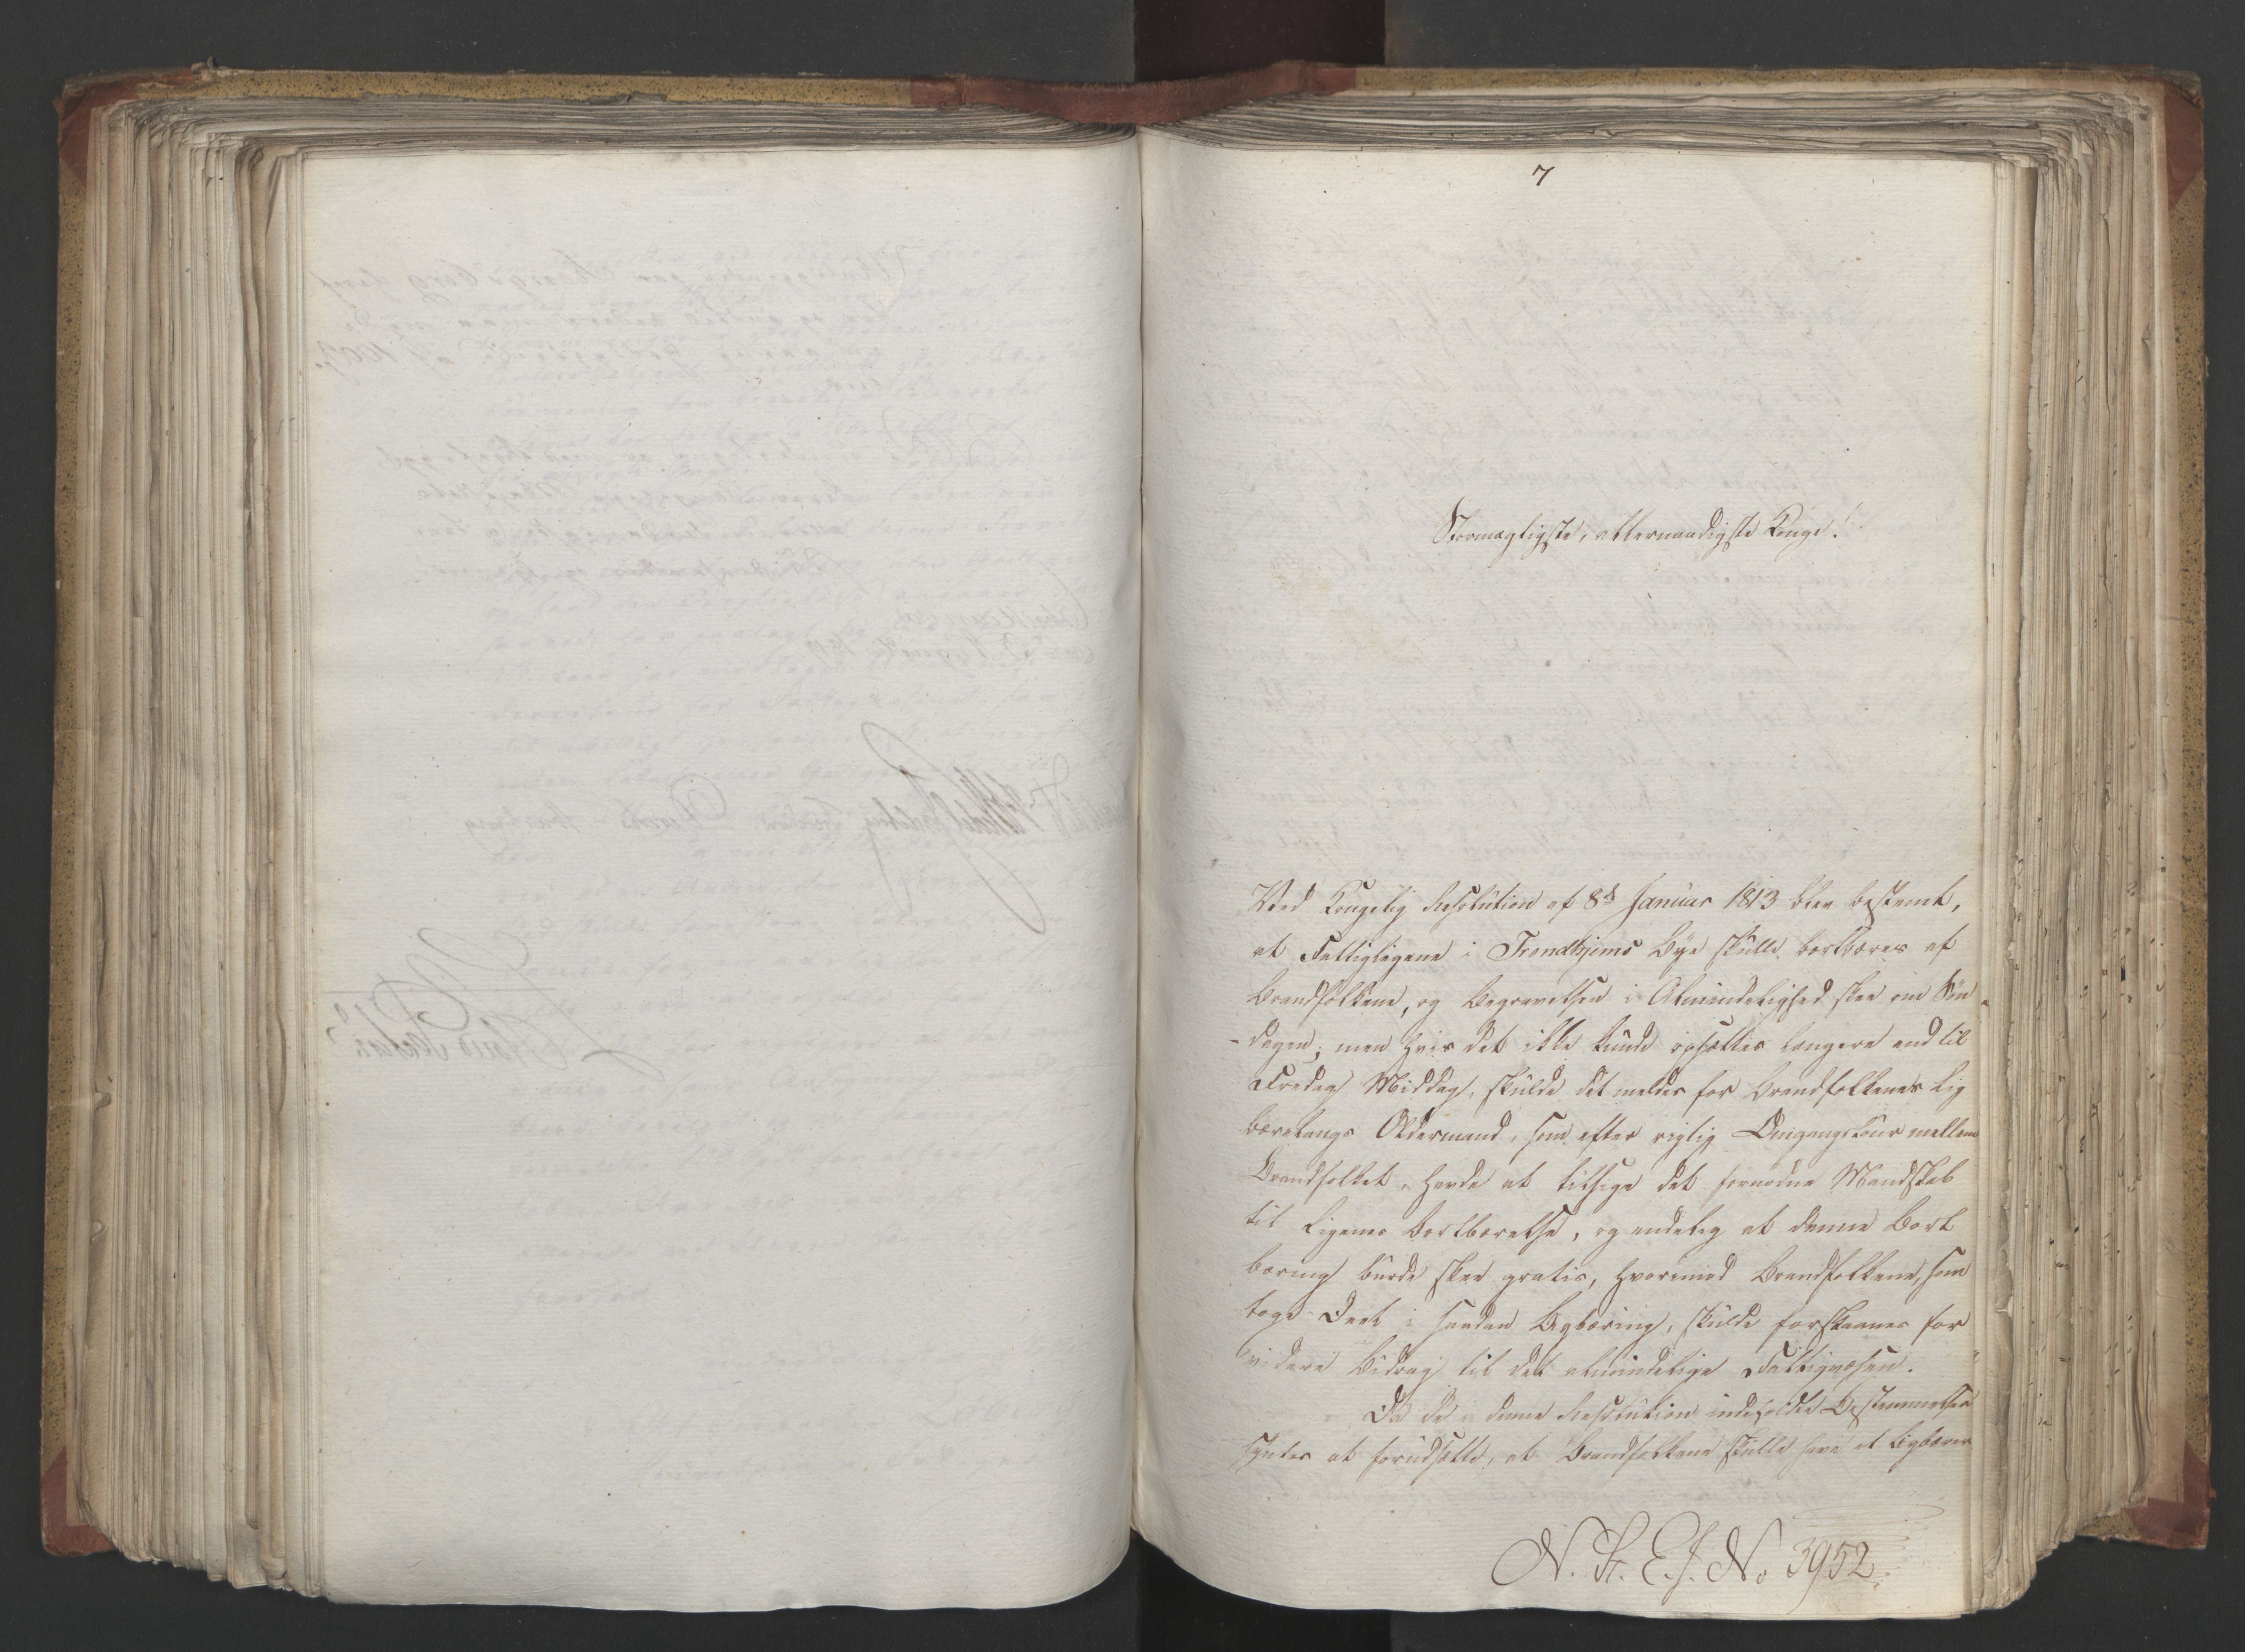 7
Stormægtigste, allernaadigste Konge!
Ved Kongelig Resolution af 8d Januar 1813 blev bestemt,
at Fattigligene i Trondhjems Bye skulle bortbæres af
Brandfolkene, og Begravelsen i Almindelighed skee om Søn-
-dagen; men hvis det ikke kunde opsættes længere end til
Fredag Middag, skulde det meldes for Brandfolkenes Lig
bærelaugs Oldermand, som efter rigtig Omgangstour mellem
Brandfolket, havde at tilsige det fornødne Mandskab
til Ligenes Bortbærelse, og endelig at denne Bort
bæring burde skee gratis, hvorimod Brandfolkene, som
toge Deel i saadan Ligbæring, skulde forskaanes for
videre Bidrag til det almindelige Fattigvæsen.
Da de i denne Resolution indeholdte Bestemmelser
syntes at forudsætte, at Brandfolkene skulle have et Ligbærer
N. St. E. J. No 3952.